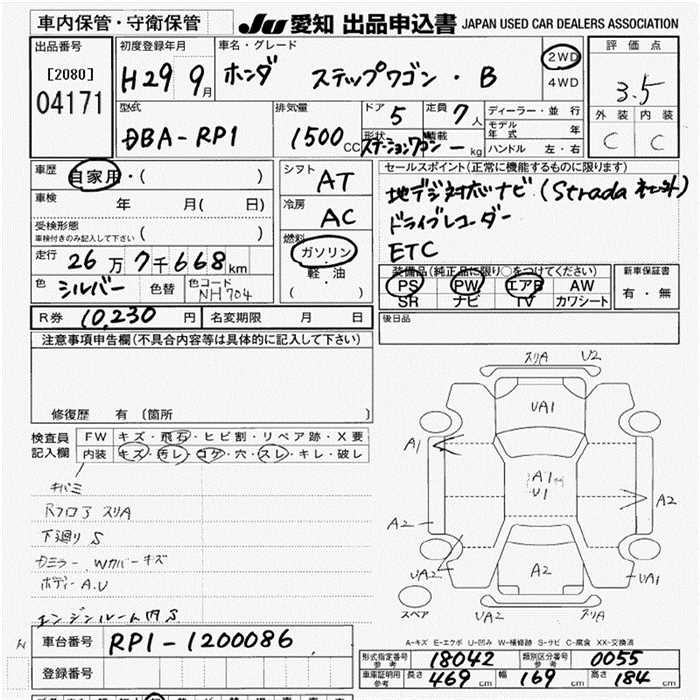 車内保管・守衛保管
JU 愛知 出品申込書 JAPAN USED CAR DEALERS ASSOCIATION
出品番号
[2080]
04171
初度登録年月
H29 9月
車名・グレード
ホンダ ステップワゴン・B
2WD
4WD
評価点
3.5
外装 内装
C C
型式
DBA-RP1
排気量
1500 CC
ドア 5
定員 7人
形状
ステーションワゴン
積載
- kg
ディーラー・並行
モデル年式 年
ハンドル 左・右
車歴
自家用・( )
車検 年 月( 日)
受検形態
車検付きのみ記入して下さい ( )
走行 26万7千668km
色 シルバー 色替 色コード NH704
シフト AT
冷房 AC
燃料
ガソリン
軽・油
( )
セールスポイント(正常に機能するものに限ります)
地デジ対応ナビ(Strada
ドライブレコーダー
ETC
装備品(純正品に限り○をつけてください)
PS PW エアB AW
SR ナビ TV カワシート
新車保証書
有・無
R券 10,230円 名変期限 月 日
後日品
注意事項申告欄(不具合内容等は具体的に記入して下さい)
修復歴 有〔箇所 〕
検査員記入欄
FW キズ・飛石・ヒビ割・リペア跡・X要
内装 キズ・汚レ・コゲ・穴・スレ・キレ・破レ
キバミ
Rフロア スリA
下廻り S
Wカバーキズ
ボディー A.U
エンジンルーム内 S
スリA U2
UA1
A1
A1
U1
A2
A2
UA2
A2
UA1
スペア
UA2 スリA
A-キズ E-エクボ U-凹み W-補修跡 S-サビ C-腐食 XX-交換済
車台番号 RP1-1200086
登録番号
形式指定番号 参考 18042
類別区分番号 参考 0055
車庫証明用 参考 長さ 469cm 幅 169cm 高さ 184cm